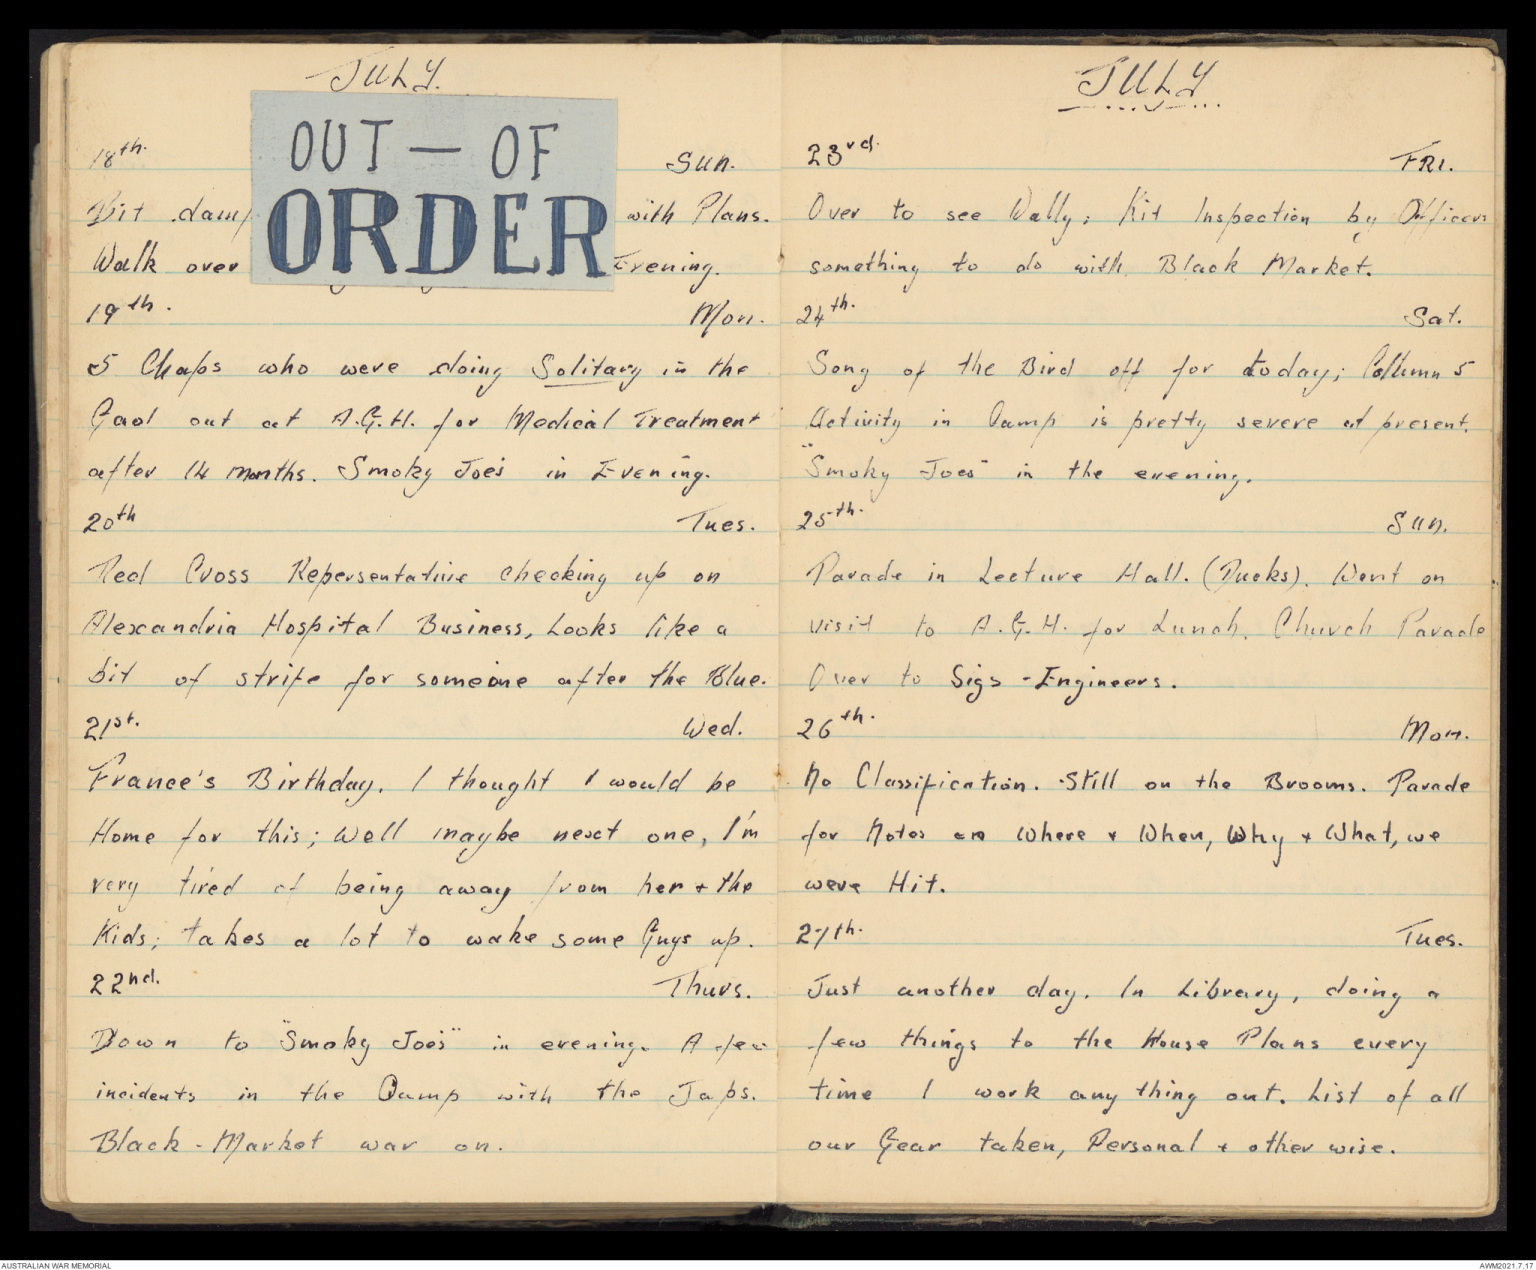 JULY.
OUT — OF
ORDER
18th. Sun.
Bit damp with Plans.
Walk over Evening.
19th. Mon.
5 Chaps who were doing Solitary in the
Gaol out at A.G.H. for Medical Treatment
after 14 months. Smoky Joe's in Evening.
20th Tues.
Red Cross Repersentative checking up on
Alexandria Hospital Business, Looks like a
bit of strife for someone after the Blue.
21st. Wed.
France's Birthday. I thought I would be
Home for this; Well maybe next one, I'm
very tired of being away from her + the
Kids; takes a lot to wake some Guys up.
22nd. Thurs.
Down to "Smoky Joe's" in evening. A few
incidents in the Camp with the Japs.
Black-Market war on.
JULY
23rd. FRI.
Over to see Wally; Kit Inspection by Officers
something to do with Black Market.
24th. Sat.
Song of the Bird off for today; Collumn 5
Activity in Camp is pretty severe at present.
"Smoky Joes" in the evening.
25th. Sun.
Parade in Lecture Hall. (Pucks). Went on
visit to A.G.H. for Lunch. Church Parade
Over to Sigs - Engineers.
26th. Mon.
No Classification. Still on the Brooms. Parade
for Notes on Where + When, Why + What, we
were Hit.
27th. Tues.
Just another day. In Library, doing a
few things to the House Plans every
time I work any thing out. List of all
our Gear taken, Personal + other wise.
AUSTRALIAN WAR MEMORIAL
AWM2021.7.17